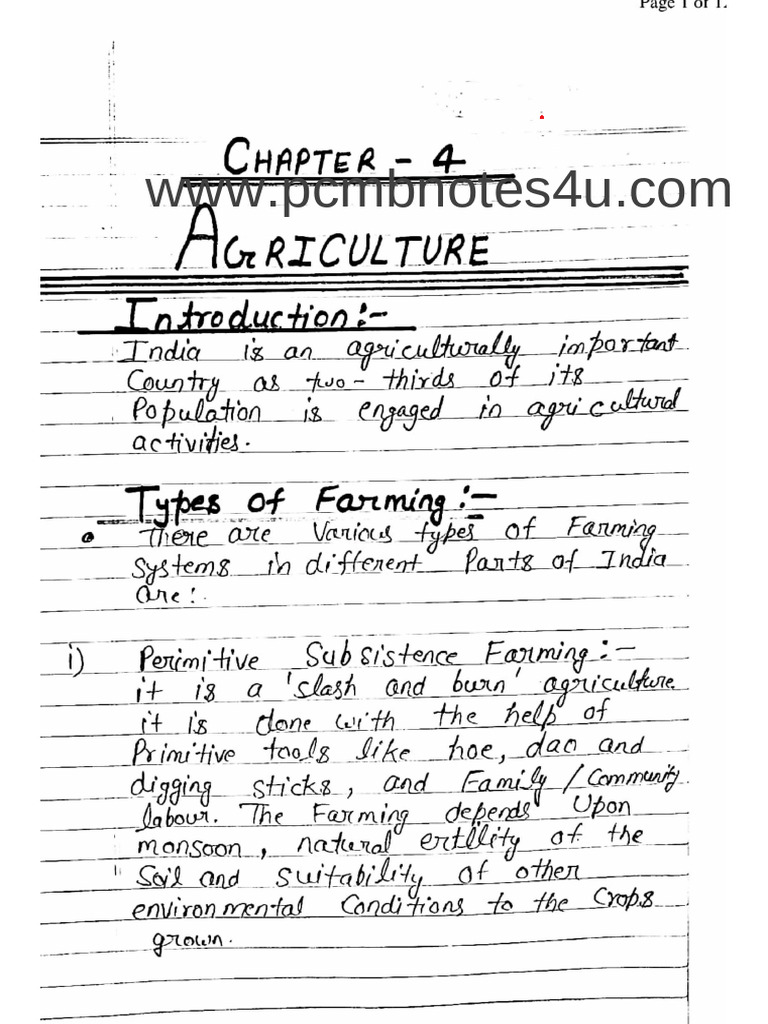 Page 1 of 1.
CHAPTER - 4
www.pcmbnotes4u.com
AGRICULTURE
Introduction:-
India is an agriculturally important
Country as two-thirds of its
Population is engaged in agricultural
activities.
Types of Farming:-
There are Various types of Farming
Systems in different Parts of India
are:
i) Perimitive Subsistence Farming:-
it is a 'slash and burn' agriculture
it is done with the help of
Primitive tools like hoe, dao and
digging sticks, and Family/Community
labour. The Farming depends Upon
monsoon, natural ertllity of the
Soil and Suitability of other
environmental Conditions to the Crops
grown.